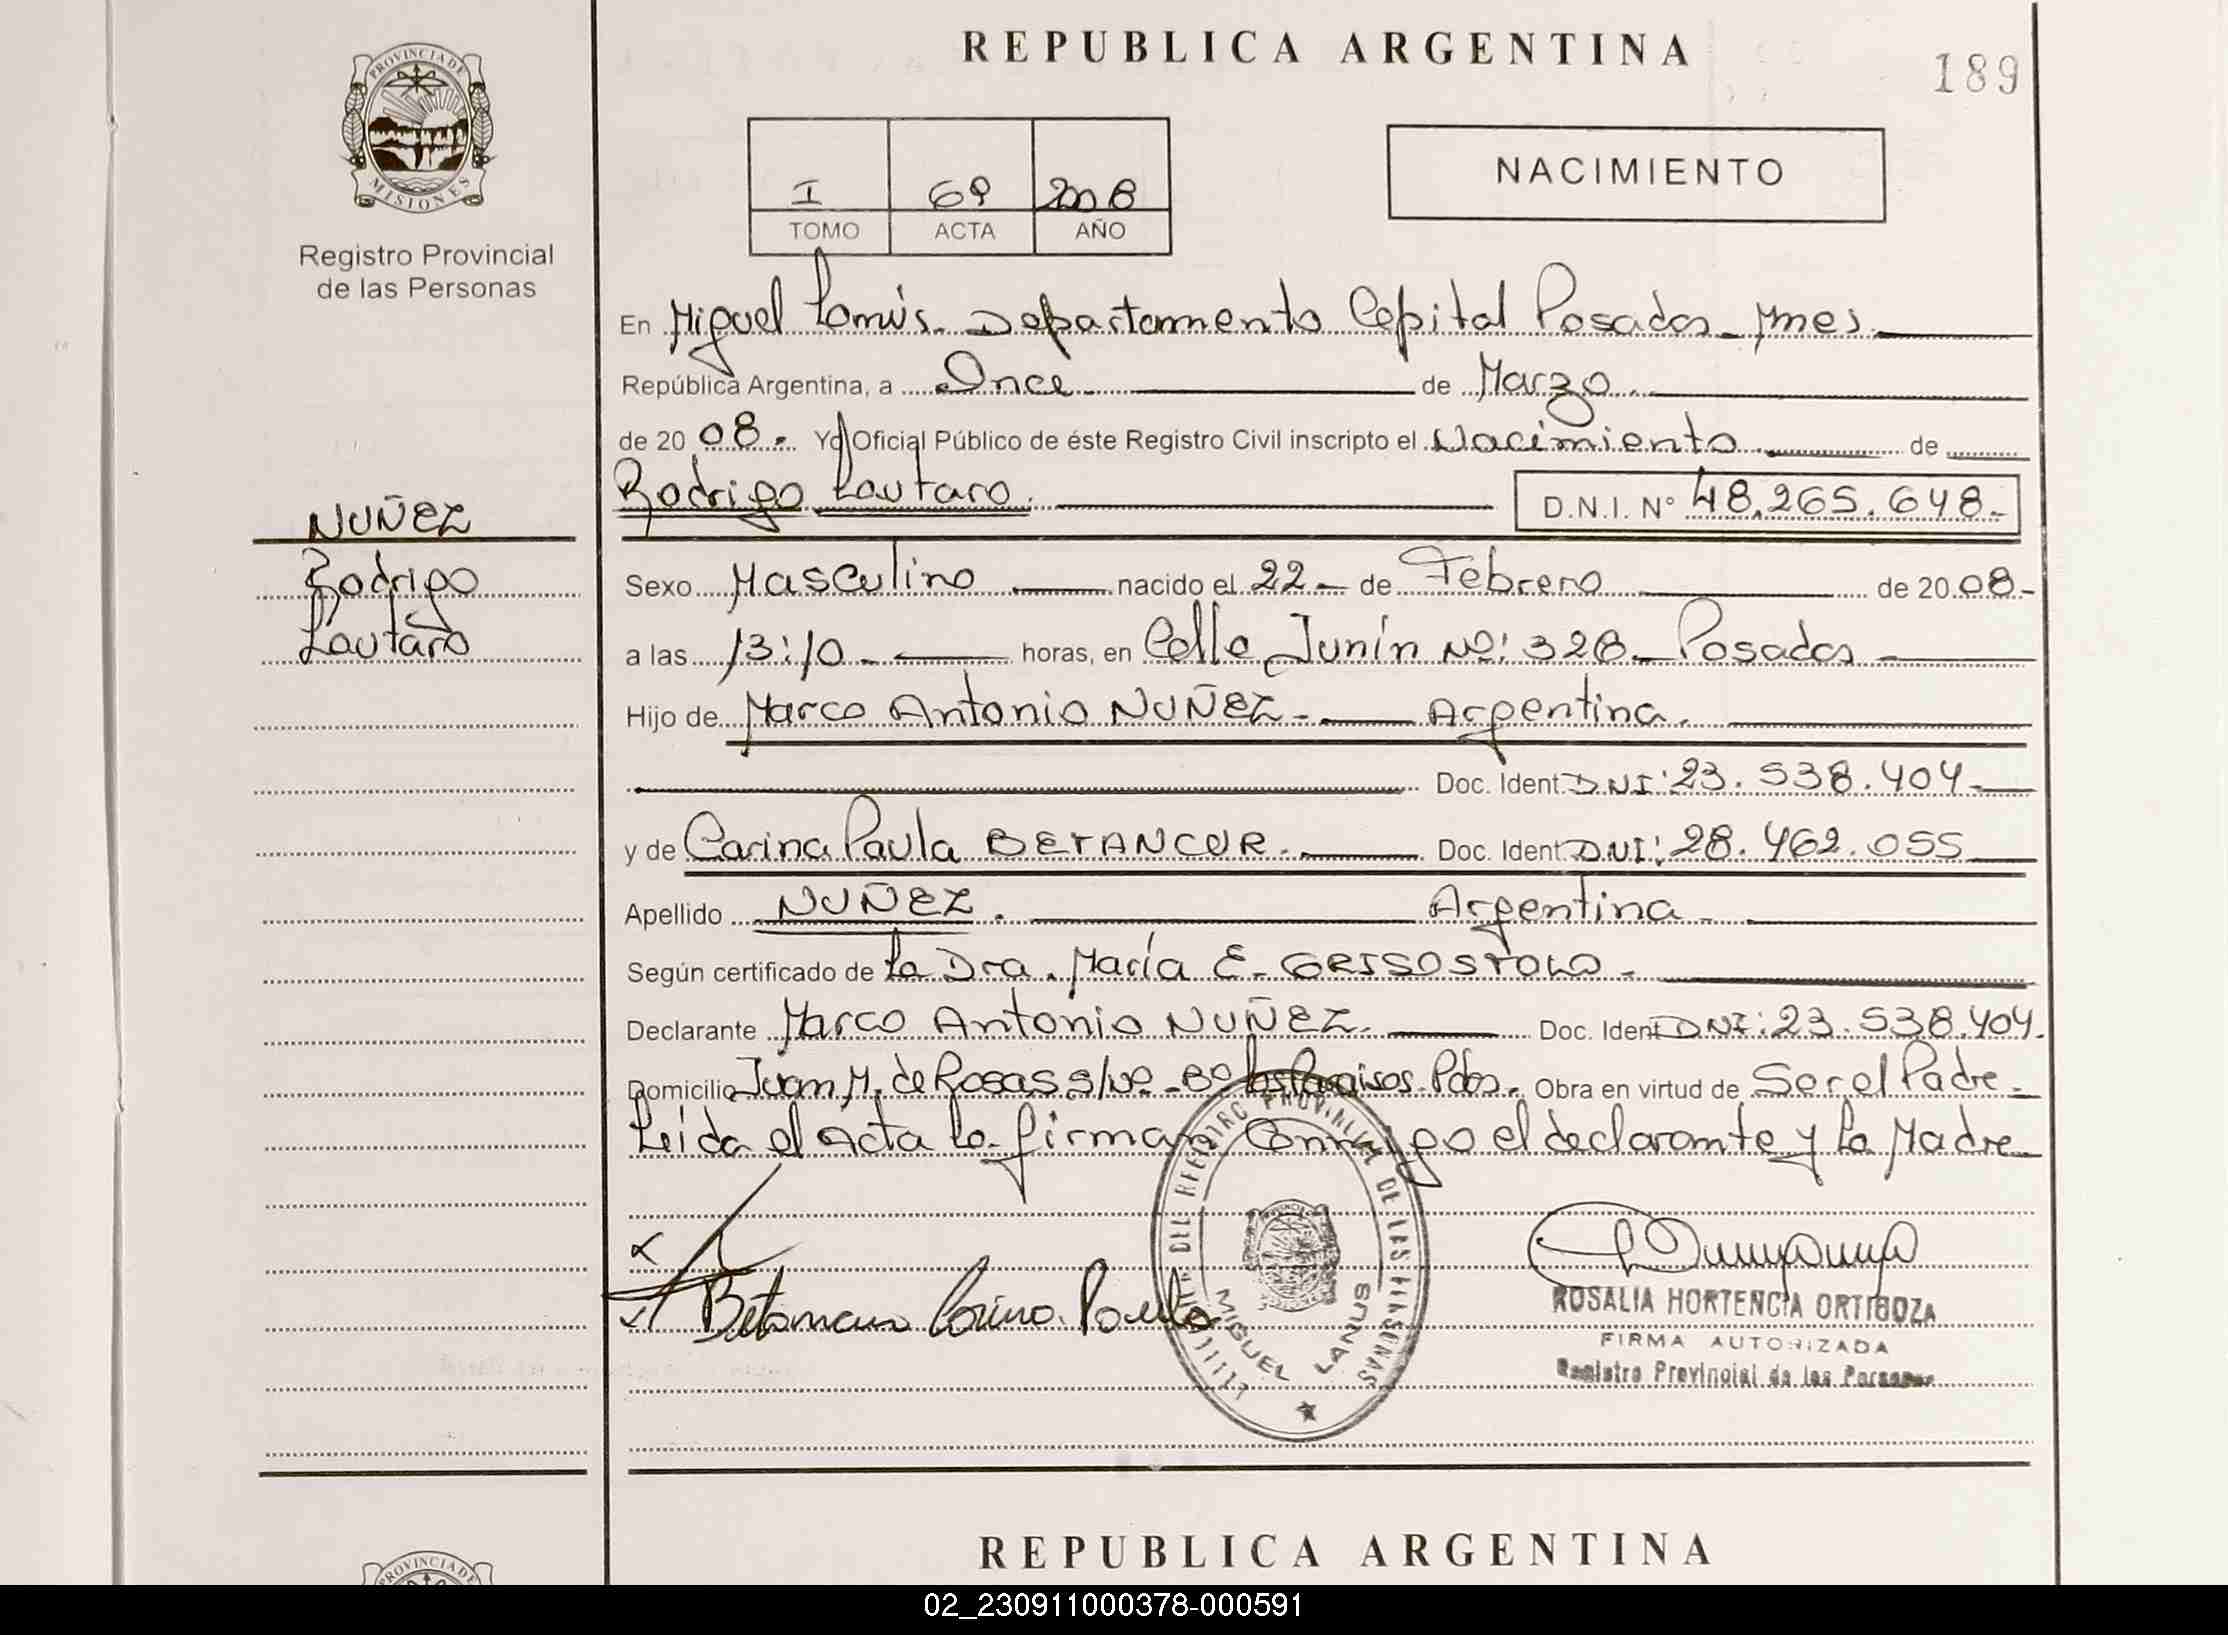 REPUBLICA ARGENTINA
189
PROVINCIA DE
MISIONES
Registro Provincial
de las Personas
I 69 2008
TOMO ACTA AÑO
NACIMIENTO
En Miguel Lanús. Departamento Capital Posadas Mnes
República Argentina, a Once de Marzo
de 20 08. Yo Oficial Público de éste Registro Civil inscripto el Nacimiento de
Rodrigo Lautaro. D.N.I. N° 48.265.648.-
NUÑEZ
Rodrigo
Lautaro
Sexo Masculino nacido el 22 de Febrero de 20 08.-
a las 13:10 horas, en Calle Junín Nº: 328 Posadas
Hijo de Marco Antonio NUÑEZ Argentina.
Doc. Ident. DNI: 23.538.404
y de Carina Paula BETANCUR. Doc. Ident. DNI: 28.462.055
Apellido NUÑEZ. Argentina
Según certificado de La Dra. María E. GRISOSTOLO
Declarante Marco Antonio NUÑEZ. Doc. Ident. DNI: 23.538.404.
Domicilio Juan M. de Rosas s/Nº Bº los Paraisos Pdas. Obra en virtud de Ser el Padre
Leida el Acta la firman Conmigo el declarante y la Madre
DEL REGISTRO PROVINCIAL DE LAS PERSONAS
MIGUEL LANUS
Betancur Carina Paula
ROSALIA HORTENCIA ORTIGOZA
FIRMA AUTORIZADA
Registro Provincial de las Personas
REPUBLICA ARGENTINA
PROVINCIA DE
02_230911000378-000591